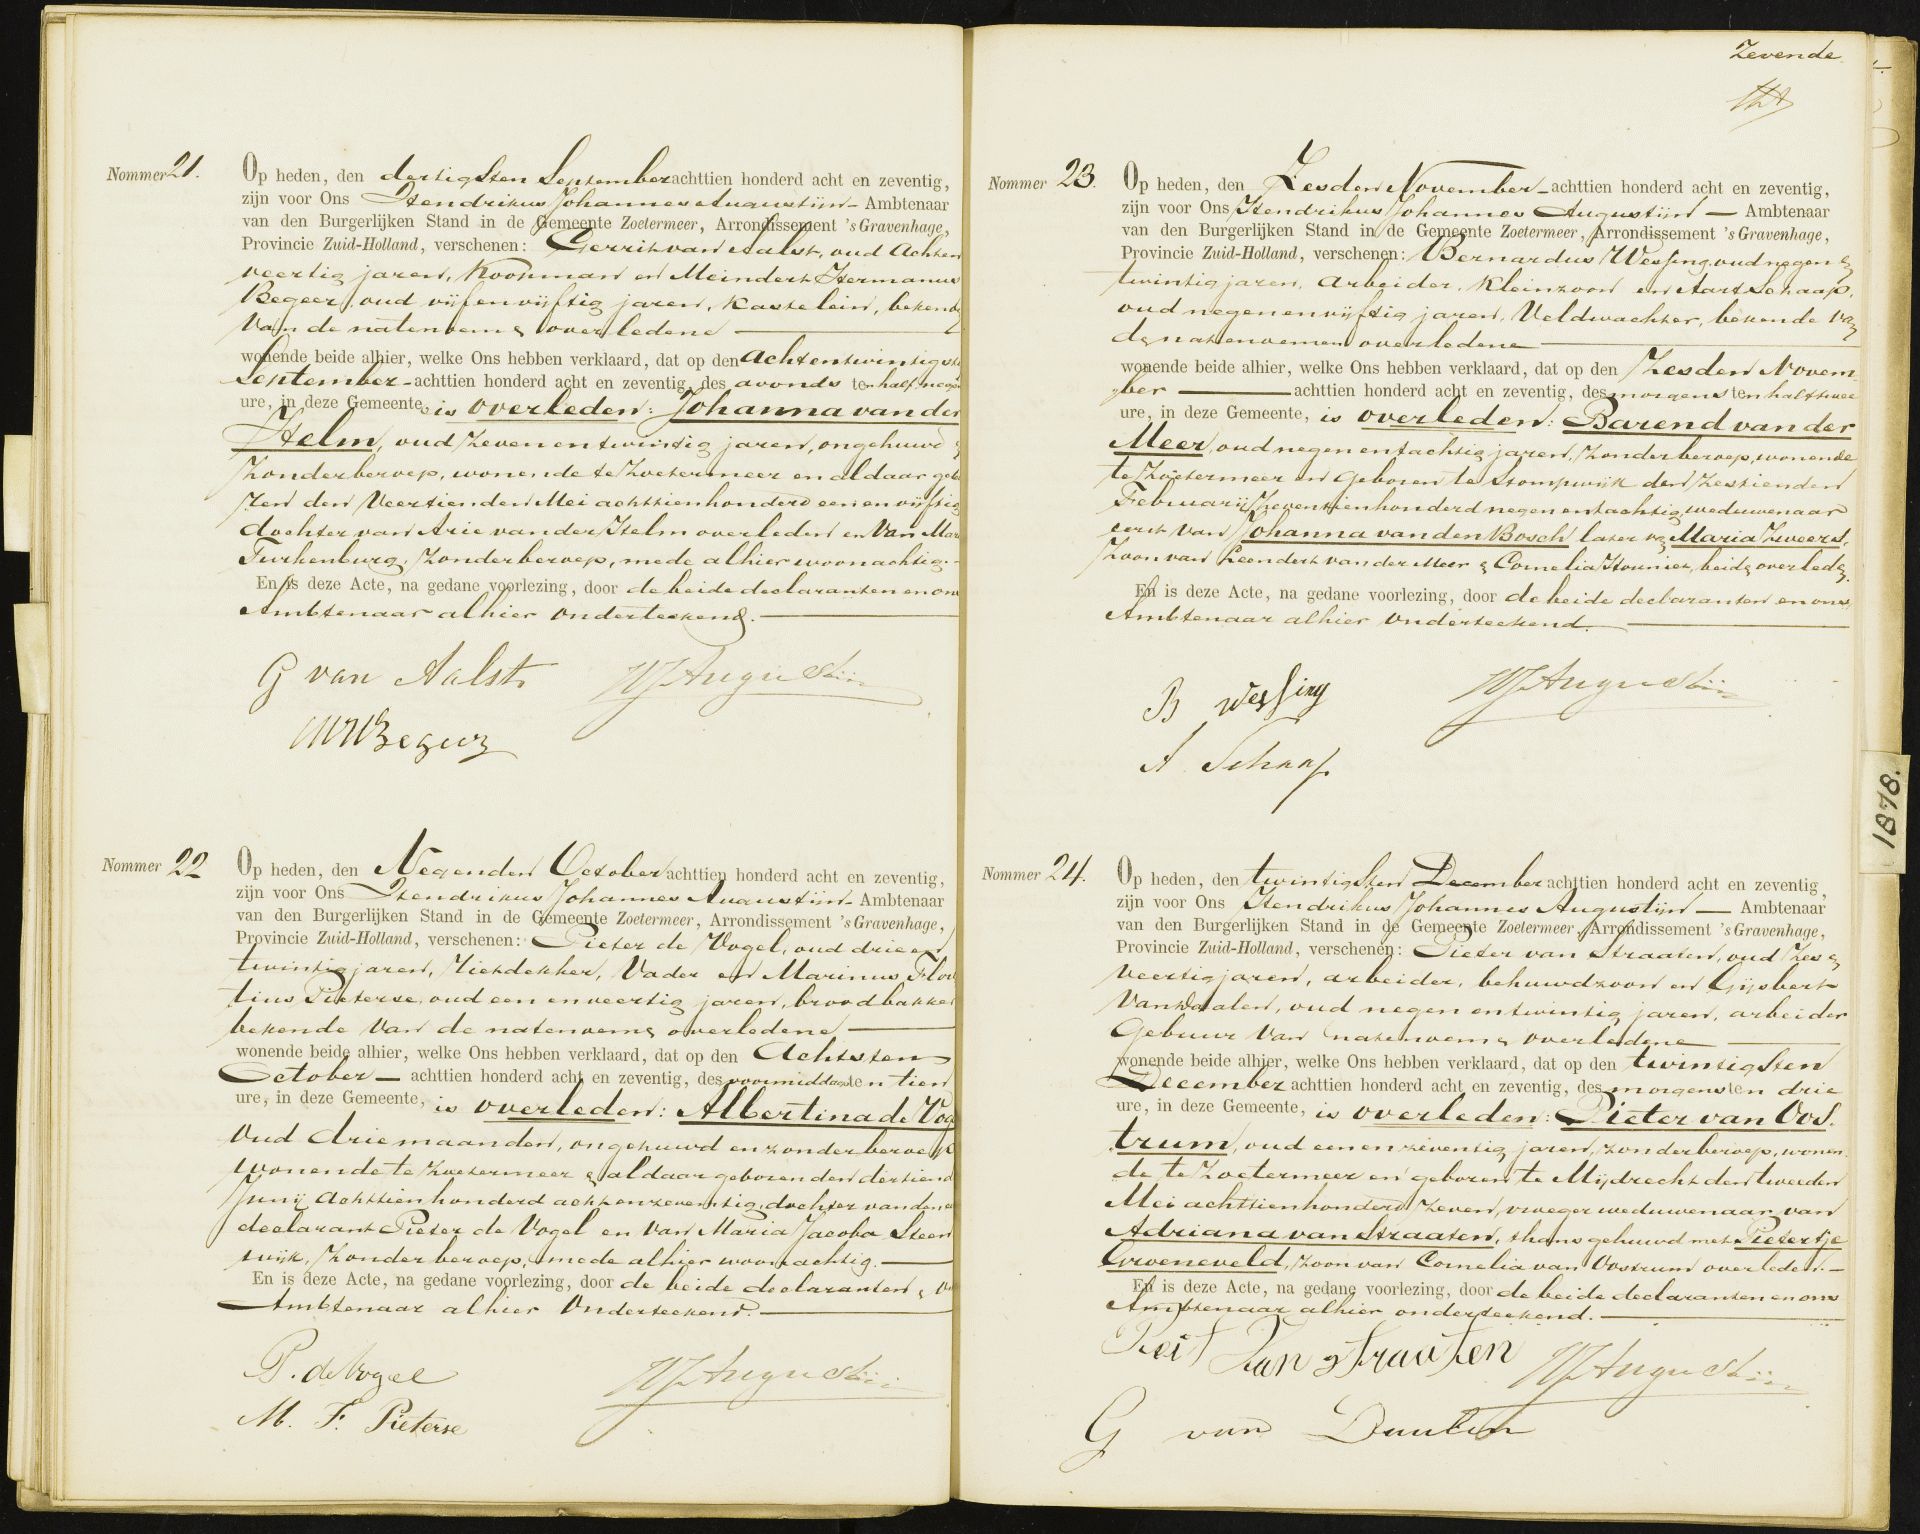 Nommer 21.
Op heden, den dertigsten September achttien honderd acht en zeventig,
zijn voor Ons Hendrikus Johannes Augustijn - Ambtenaar
van den Burgerlijken Stand in de Gemeente Zoetermeer, Arrondissement 's Gravenhage,
Provincie Zuid-Holland, verschenen: Gerrit van Aalst, oud achten
veertig jaren, Koopman en Meindert Hermanus
Begeer, oud vijfenvijftig jaren, Kastelein, bekende
van de natenoemen overledene
wonende beide alhier, welke Ons hebben verklaard, dat op den achtentwintigste
September - achttien honderd acht en zeventig, des avonds ten half negen
ure, in deze Gemeente, is overleden: Johanna van der
Helm, oud zeven en twintig jaren, ongehuwd
zonder beroep, wonende te Zoetermeer en aldaar gebo
ren den Veertienden Mei achttienhonderd een en vijftig
dochter van Arie van der Helm overleden en Van
Turkenburg, zonder beroep, mede alhier woonachtig.-
En is deze Acte, na gedane voorlezing, door de beide declaranten en ons
Ambtenaar alhier onderteekend.
G van Aalst HJAugustijn
MHBegeer
Nommer 22
Op heden, den Negenden October achttien honderd acht en zeventig,
zijn voor Ons Hendrikus Johannes Augustijn - Ambtenaar
van den Burgerlijken Stand in de Gemeente Zoetermeer, Arrondissement 's Gravenhage,
Provincie Zuid-Holland, verschenen: Pieter de Vogel, oud drie en
twintig jaren, rietdekker, Vader en Marinus Flor
tius Pieterse, oud een en veertig jaren, broodbakker
bekende van de natenoemen overledene
wonende beide alhier, welke Ons hebben verklaard, dat op den Achtsten
October - achttien honderd acht en zeventig, des voormiddags ten tien
ure, in deze Gemeente, is overleden: Albertina de Vog
oud drie maanden, ongehuwd en zonder beroep
wonende te Zoetermeer & aldaar geboren den dertiend
Junij achttienhonderd acht en zeventig, dochter van den
declarant Pieter de Vogel en van Maria Jacoba Steen
wijk, zonder beroep, mede alhier woonachtig.
En is deze Acte, na gedane voorlezing, door de beide declaranten &
Ambtenaar alhier Onderteekend.
P. de Vogel HJAugustijn
M. F. Pieterse
Zevende
Nommer 23.
Op heden, den Zesden November - achttien honderd acht en zeventig,
zijn voor Ons Hendrikus Johannes Augustijn - Ambtenaar
van den Burgerlijken Stand in de Gemeente Zoetermeer, Arrondissement 's Gravenhage,
Provincie Zuid-Holland, verschenen: Bernardus Wessing, oud negen &
twintig jaren, arbeider, kleinzoon en Aart Schaap,
oud negen en vijftig jaren, Veldwachter, bekende van
de natenoemen overledene
wonende beide alhier, welke Ons hebben verklaard, dat op den Zesden Novem-
ber achttien honderd acht en zeventig, des morgens ten half twee
ure, in deze Gemeente, is overleden: Barend van der
Meer, oud negen en tachtig jaren, zonder beroep, wonende
te Zoetermeer en geboren te Stompwijk den Zestienden
Februarij Zeventienhonderd negen en tachtig, weduwenaar
eerst van Johanna van den Bosch later van Maria Zweers,
Zoon van Leendert van der Meer & Cornelia beide overleden.
En is deze Acte, na gedane voorlezing, door de beide declaranten en ons
Ambtenaar alhier Onderteekend.
B Wessing HJAugustijn
A Schaap
1878.
Nommer 24.
Op heden, den twintigsten December achttien honderd acht en zeventig,
zijn voor Ons Hendrikus Johannes Augustijn - Ambtenaar
van den Burgerlijken Stand in de Gemeente Zoetermeer, Arrondissement 's Gravenhage,
Provincie Zuid-Holland, verschenen: Pieter van Straaten, oud Zes &
Veertig jaren, arbeider, behuwdzoon en Gijsbert
van Daalen, oud negen en twintig jaren, arbeider
Gebuur van natenoemen overledene
wonende beide alhier, welke Ons hebben verklaard, dat op den twintigsten
December achttien honderd acht en zeventig, des morgens ten drie
ure, in deze Gemeente, is overleden: Pieter van Oos-
trum, oud een en zeventig jaren, zonder beroep, wonen
de te Zoetermeer en geboren te Mijdrecht den tweeden
Mei achttienhonderd Zeven, vroeger weduwenaar van
Adriana van Straaten, thans gehuwd met Pietertje
Groeneveld, zoon van Cornelia van Oostrum overleden.-
En is deze Acte, na gedane voorlezing, door de beide declaranten en ons
Ambtenaar alhier onderteekend.
van Straaten HJAugustijn
G van Daalen